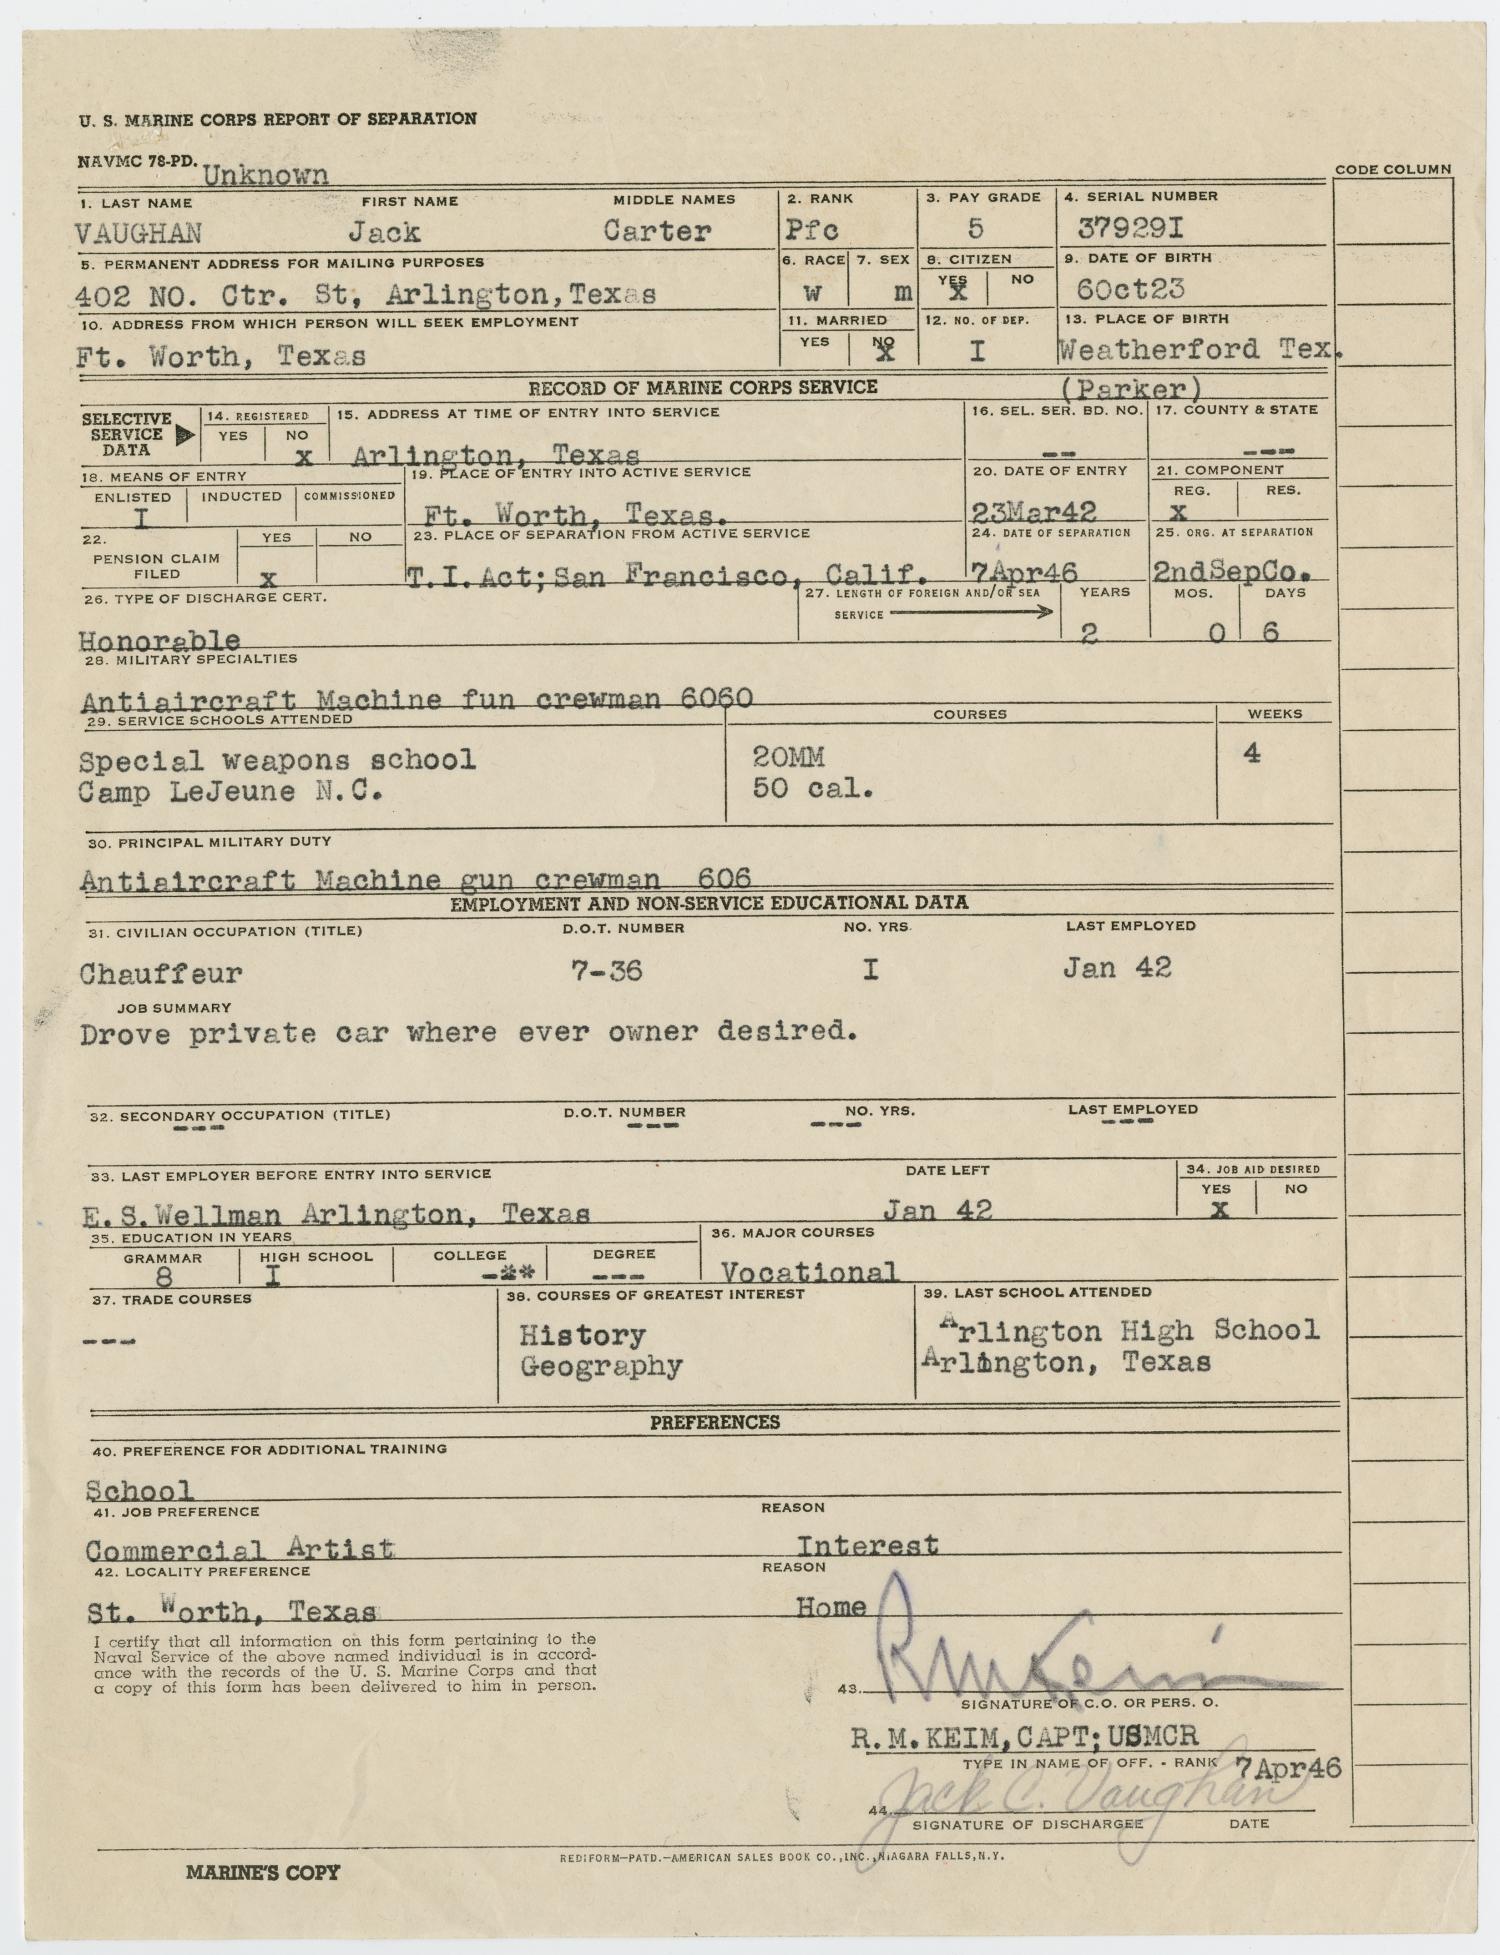 U. S. MARINE CORPS REPORT OF SEPARATION
NAVMC 78-PD. Unknown
CODE COLUMN
1. LAST NAME FIRST NAME MIDDLE NAMES 2. RANK 3. PAY GRADE 4. SERIAL NUMBER
VAUGHAN Jack Carter Pfc 5 37929I
5. PERMANENT ADDRESS FOR MAILING PURPOSES 6. RACE 7. SEX 8. CITIZEN 9. DATE OF BIRTH
YES NO
402 NO. Ctr. St, Arlington,Texas W m X 6Oct23
10. ADDRESS FROM WHICH PERSON WILL SEEK EMPLOYMENT 11. MARRIED 12. NO. OF DEP. 13. PLACE OF BIRTH
YES NO
Ft. Worth, Texas X I Weatherford Tex.
RECORD OF MARINE CORPS SERVICE (Parker)
SELECTIVE SERVICE DATA 14. REGISTERED 15. ADDRESS AT TIME OF ENTRY INTO SERVICE 16. SEL. SER. BD. NO. 17. COUNTY & STATE
YES NO
x Arlington, Texas -- ---
18. MEANS OF ENTRY 19. PLACE OF ENTRY INTO ACTIVE SERVICE 20. DATE OF ENTRY 21. COMPONENT
ENLISTED INDUCTED COMMISSIONED REG. RES.
I Ft. Worth, Texas. 23Mar42 x
22. PENSION CLAIM FILED YES NO 23. PLACE OF SEPARATION FROM ACTIVE SERVICE 24. DATE OF SEPARATION 25. ORG. AT SEPARATION
x T.I.Act;San Francisco, Calif. 7Apr46 2ndSepCo.
26. TYPE OF DISCHARGE CERT. 27. LENGTH OF FOREIGN AND/OR SEA SERVICE YEARS MOS. DAYS
Honorable 2 0 6
28. MILITARY SPECIALTIES
Antiaircraft Machine fun crewman 6060
29. SERVICE SCHOOLS ATTENDED COURSES WEEKS
Special weapons school 20MM 4
Camp LeJeune N.C. 50 cal.
30. PRINCIPAL MILITARY DUTY
Antiaircraft Machine gun crewman 606
EMPLOYMENT AND NON-SERVICE EDUCATIONAL DATA
31. CIVILIAN OCCUPATION (TITLE) D.O.T. NUMBER NO. YRS. LAST EMPLOYED
Chauffeur 7-36 I Jan 42
JOB SUMMARY
Drove private car where ever owner desired.
32. SECONDARY OCCUPATION (TITLE) D.O.T. NUMBER NO. YRS. LAST EMPLOYED
--- --- --- ---
33. LAST EMPLOYER BEFORE ENTRY INTO SERVICE DATE LEFT 34. JOB AID DESIRED
YES NO
E.S.Wellman Arlington, Texas Jan 42 x
35. EDUCATION IN YEARS 36. MAJOR COURSES
GRAMMAR HIGH SCHOOL COLLEGE DEGREE
8 I -** --- Vocational
37. TRADE COURSES 38. COURSES OF GREATEST INTEREST 39. LAST SCHOOL ATTENDED
--- History Arlington High School
Geography Arlington, Texas
PREFERENCES
40. PREFERENCE FOR ADDITIONAL TRAINING
School
41. JOB PREFERENCE REASON
Commercial Artist Interest
42. LOCALITY PREFERENCE REASON
St. Worth, Texas Home
I certify that all information on this form pertaining to the
Naval Service of the above named individual is in accord-
ance with the records of the U. S. Marine Corps and that
a copy of this form has been delivered to him in person.
43. RM Keim
SIGNATURE OF C.O. OR PERS. O.
R.M.KEIM,CAPT;USMCR
TYPE IN NAME OF OFF. - RANK 7Apr46
44. Jack C. Vaughan
SIGNATURE OF DISCHARGEE DATE
REDIFORM—PATD.—AMERICAN SALES BOOK CO.,INC.,NIAGARA FALLS,N.Y.
MARINE'S COPY